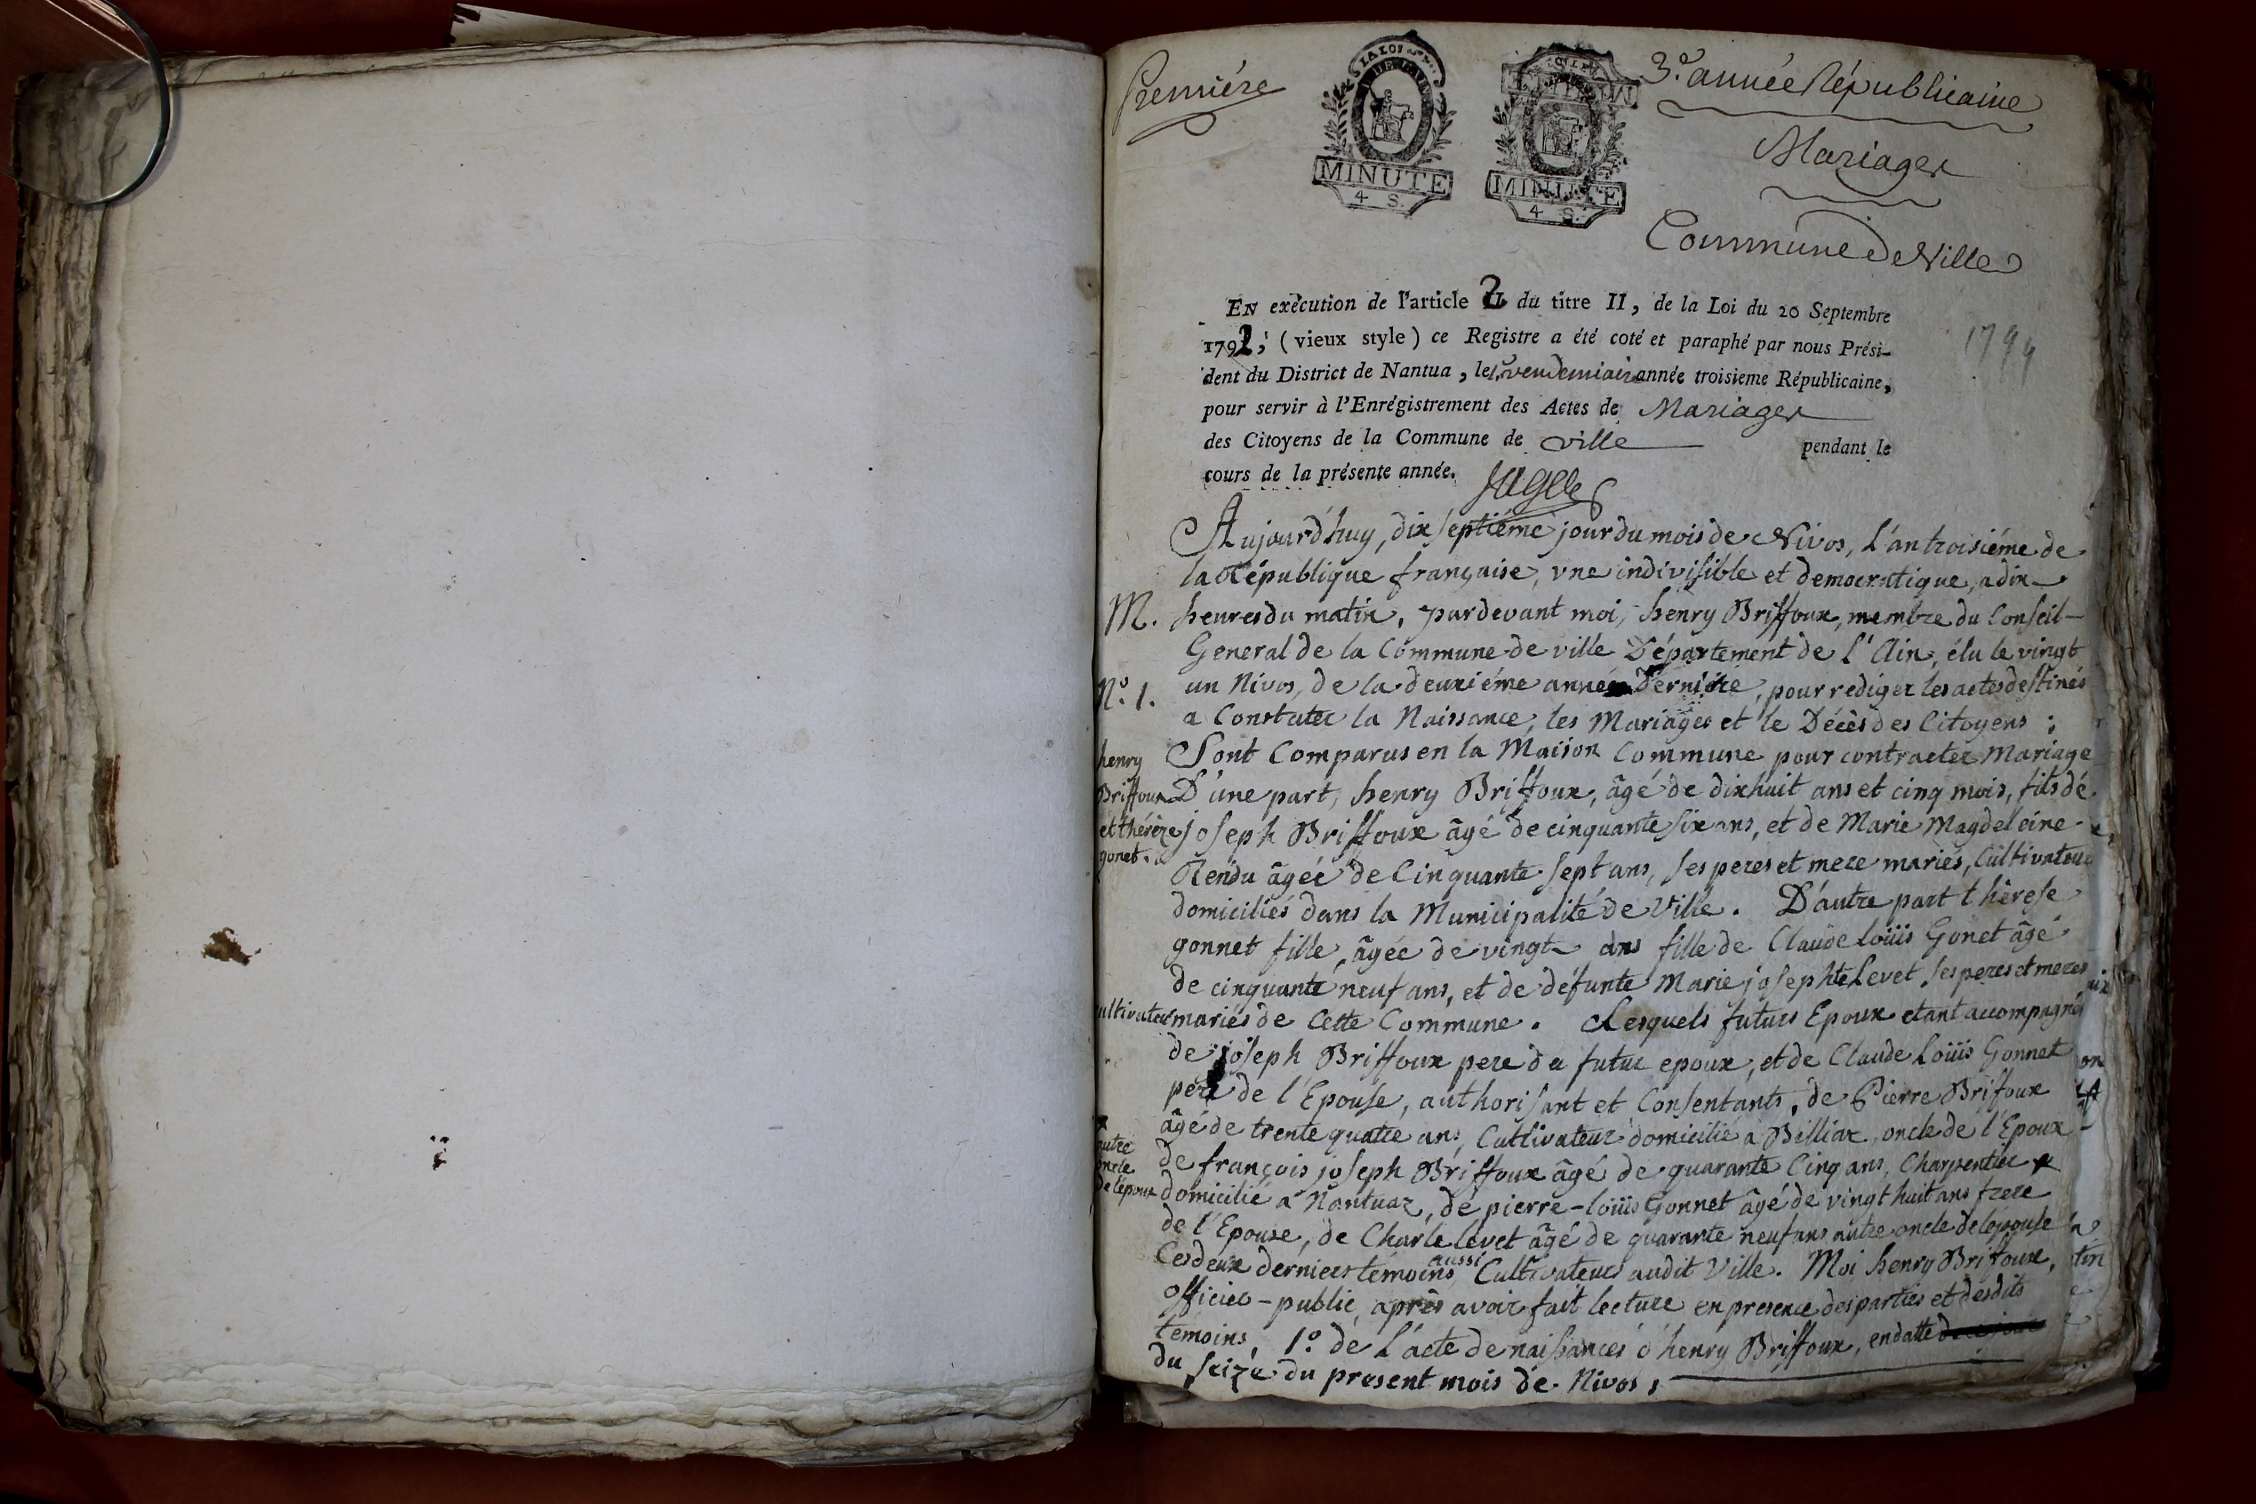 Premiére
LA LOI
MINUTE
4 S.
MINUTE
4 S.
3.e année Républicaine
Mariages
Commune de Ville
EN exécution de l'article 2 du titre II, de la Loi du 20 Septembre
1792, (vieux style) ce Registre a été coté et paraphé par nous Prési-
dent du District de Nantua, le vendemiaire année troisieme Républicaine,
pour servir à l'Enrégistrement des Actes de Mariages
des Citoyens de la Commune de ville pendant le
cours de la présente année.
1794
Aujourd'huy, dix septiéme jour du mois de Nivos, L'an troisiéme de
la République française, vne indivisible et democratique, a dix
M. heures du matin, pardevant moi, henry Briffoux, membre du Conseil-
General de la Commune de ville Département de l'Ain, élu le vingt
N.o 1. un Nivos, de la deuxiéme année derniére, pour rediger les actes destinés
a Constater la Naissance, les Mariages et le Décès des Citoyens ;
henry Sont Comparus en la Maison Commune pour contracter Mariage
Briffoux D'une part, henry Briffoux, âgé de dixhuit ans et cinq mois, fils dé
et thérèze joseph Briffoux âgé de cinquante six ans, et de Marie Magdeleine
gonet. Rendu âgéé de Cinquante sept ans, ses peres et mere mariés, Cultivateurs
domiciliés dans la Municipalité de Ville. D'autre part thérese
gonnet fille, âgée de vingt ans fille de Claude Loüis Gonet âgé
de cinquante neuf ans, et de défunte Marie josephte Levet, ses peres et meres
cultivateurs mariés de Cette Commune. Lesquels futurs Epoux etant accompagnés
de joseph Briffoux pere du futur epoux, et de Claude Loüis Gonnet
pere de l'Epouse, authorisant et Consentants, de Pierre Briffoux
âgé de trente quatre ans, Cultivateur domicilié a Billiax, oncle de l'Epoux
autre oncle de l'époux
de françois joseph Briffoux âgé de quarante Cinq ans, Charpentier x
domicilié a Nantuaz, de pierre-loüis Gonnet âgé de vingt huit ans frere
de l'Epouse, de Charle levet âgé de quarante neuf ans autre oncle de lépouse
Ces deux derniers témoins aussi Cultivateurs audit Ville. Moi henry Briffoux,
officier-public, après avoir fait lecture en presence des parties et desdits
temoins, 1.o de L'acte de naissances d'henry Briffoux, en datte
du seize du present mois de Nivos,